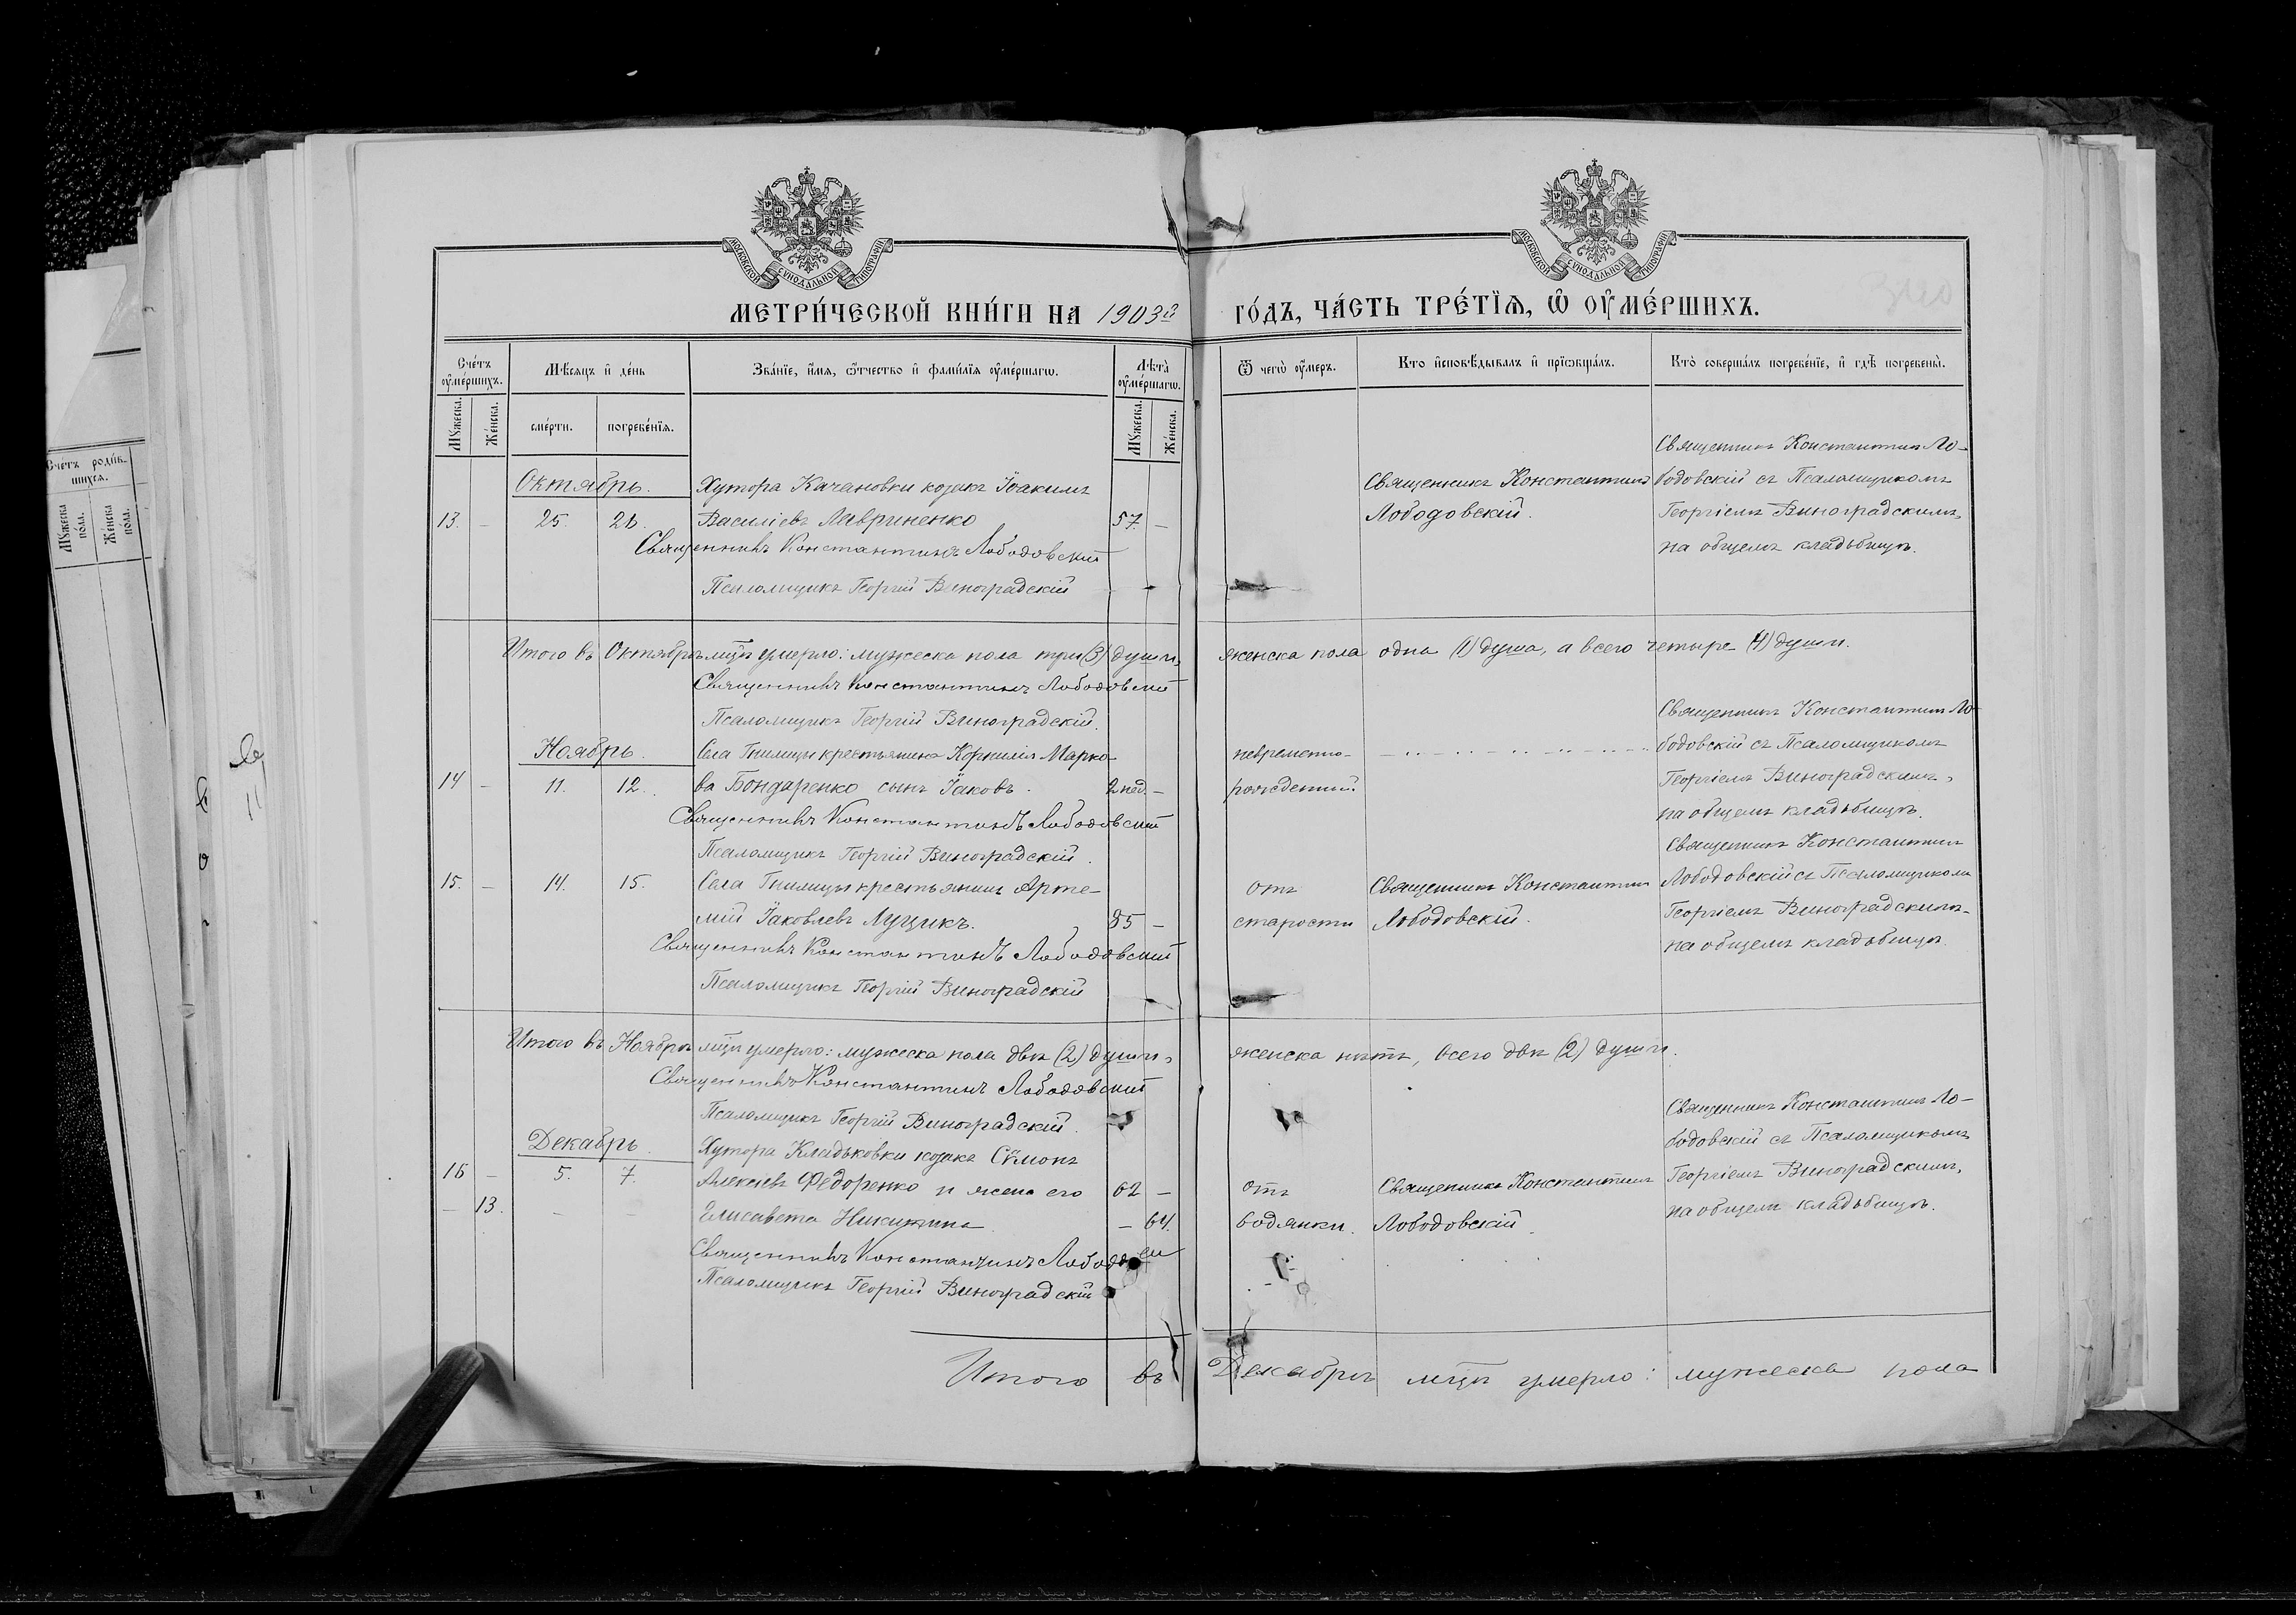 МОСКОВСКОЙ СѴНОДАЛЬНОЙ ТИПОГРАФІИ
МОСКОВСКОЙ СѴНОДАЛЬНОЙ ТИПОГРАФІИ
МЕТРИ́ЧЕСКОЙ КНИ́ГИ НА 1903й ГО́ДЪ, ЧА́СТЬ ТРЕ́ТЇѦ, Ѡ҆ ОУ҆МЕ́РШИХЪ.
Сче́тъ оу҆ме́ршихъ.
Мꙋ́жеска.
Же́нска.
Мѣ́сѧцъ и҆ де́нь
сме́рти.
погребе́нїѧ.
Зва́нїе, и҆́мѧ, ѻ҆́тчество и҆ фами́лїѧ оу҆ме́ршагѡ.
Лѣ́та оу҆ме́ршагѡ.
Мꙋ́жеска.
Же́нска.
Ѿ чегѡ̀ оу҆́меръ.
Кто̀ и҆сповѣ́дывалъ и҆ прїѡбща́лъ.
Кто̀ соверша́лъ погребе́нїе, и҆ гдѣ̀ погребены̀.
Октябрь.
13. – 25. 26.
Хутора Качановки козакъ Іоакимъ
Василіевъ Лавриненко 57 –
Священникъ Константинъ Лободовскій
Псаломщикъ Георгій Виноградскій
Священникъ Константинъ
Лободовскій.
Священникъ Константинъ Ло-
бодовскій съ Псаломщикомъ
Георгіемъ Виноградскимъ,
на общемъ кладьбищѣ.
Итого въ Октябрѣ мцѣ умерло: мужеска пола три (3) души, женска пола одна (1) душа, а всего четыре (4) души.
Священникъ Константинъ Лободовскій
Псаломщикъ Георгій Виноградскій.
Ноябрь.
14 – 11. 12.
Села Гнилицы крестьянина Корнилія Марко-
ва Бондаренко сынъ Іаковъ. 2 нед. –
Священникъ Константинъ Лободовскій
Псаломщикъ Георгій Виноградскій.
невременно-
рожденный.
Священникъ Константинъ Ло-
бодовскій съ Псаломщикомъ
Георгіемъ Виноградскимъ,
на общемъ кладьбищѣ.
15. – 14. 15.
Села Гнилицы крестьянинъ Арте-
мій Іаковлевъ Луцикъ. 85 –
Священникъ Константинъ Лободовскій
Псаломщикъ Георгій Виноградскій
отъ
старости
Священникъ Константинъ
Лободовскій.
Священникъ Константинъ
Лободовскій съ Псаломщикомъ
Георгіемъ Виноградскимъ
на общемъ кладьбищѣ.
Итого въ Ноябрѣ мцѣ умерло: мужеска пола двѣ (2) души, женска нѣтъ, всего двѣ (2) души.
Священникъ Константинъ Лободовскій
Псаломщикъ Георгій Виноградскій.
Декабрь.
16 – 5. 7.
Хутора Кладьковки козакъ Сѵмонъ
Алексіевъ Федоренко и жена его 62 –
– 13. – –
Елисавета Никитина – 64.
Священникъ Константинъ
Псаломщикъ Георгій Виноградскій
отъ
водянки.
Священникъ Константинъ
Лободовскій.
Священникъ Константинъ Ло-
бодовскій съ Псаломщикомъ
Георгіемъ Виноградскимъ,
на общемъ кладьбищѣ.
Итого въ Декабрѣ мцѣ умерло: мужеска пола
Сче́тъ роди́в-
шихсѧ.
Мꙋ́жеска по́ла.
Же́нска по́ла.